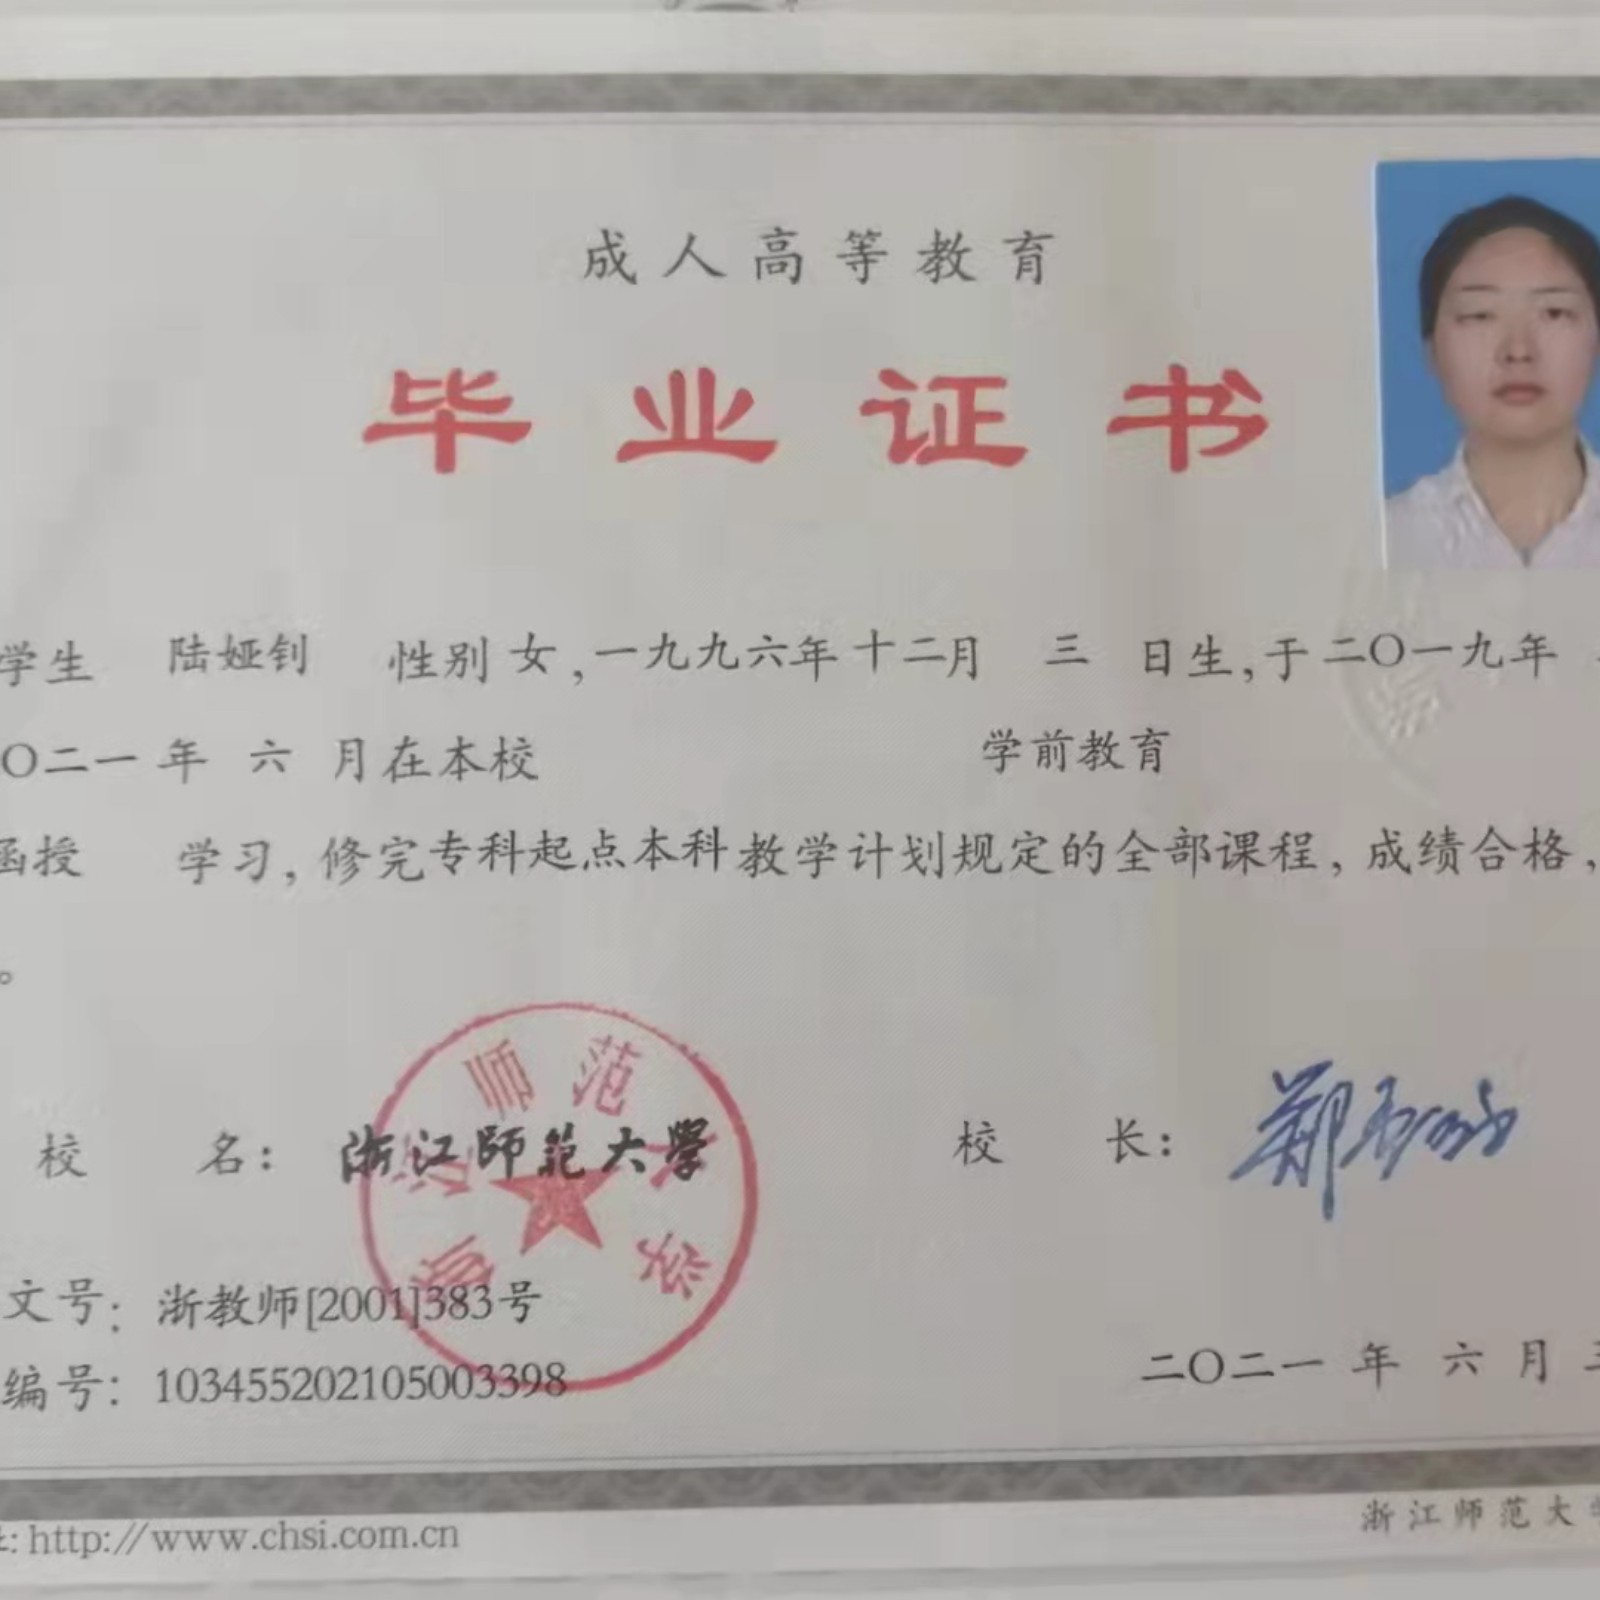 成人高等教育
毕业证书
学生 陆娅钊 性别 女,一九九六年 十二月 三 日生,于 二〇一九年
〇二一 年 六 月在本校 学前教育
函授 学习, 修完专科起点本科教学计划规定的全部课程, 成绩合格,
。
校 名: 浙江師范大學
校 长:
师范
大学
文号: 浙教师[2001]383号
编号: 103455202105003398
二〇二一 年 六 月
http://www.chsi.com.cn
浙江师范大学